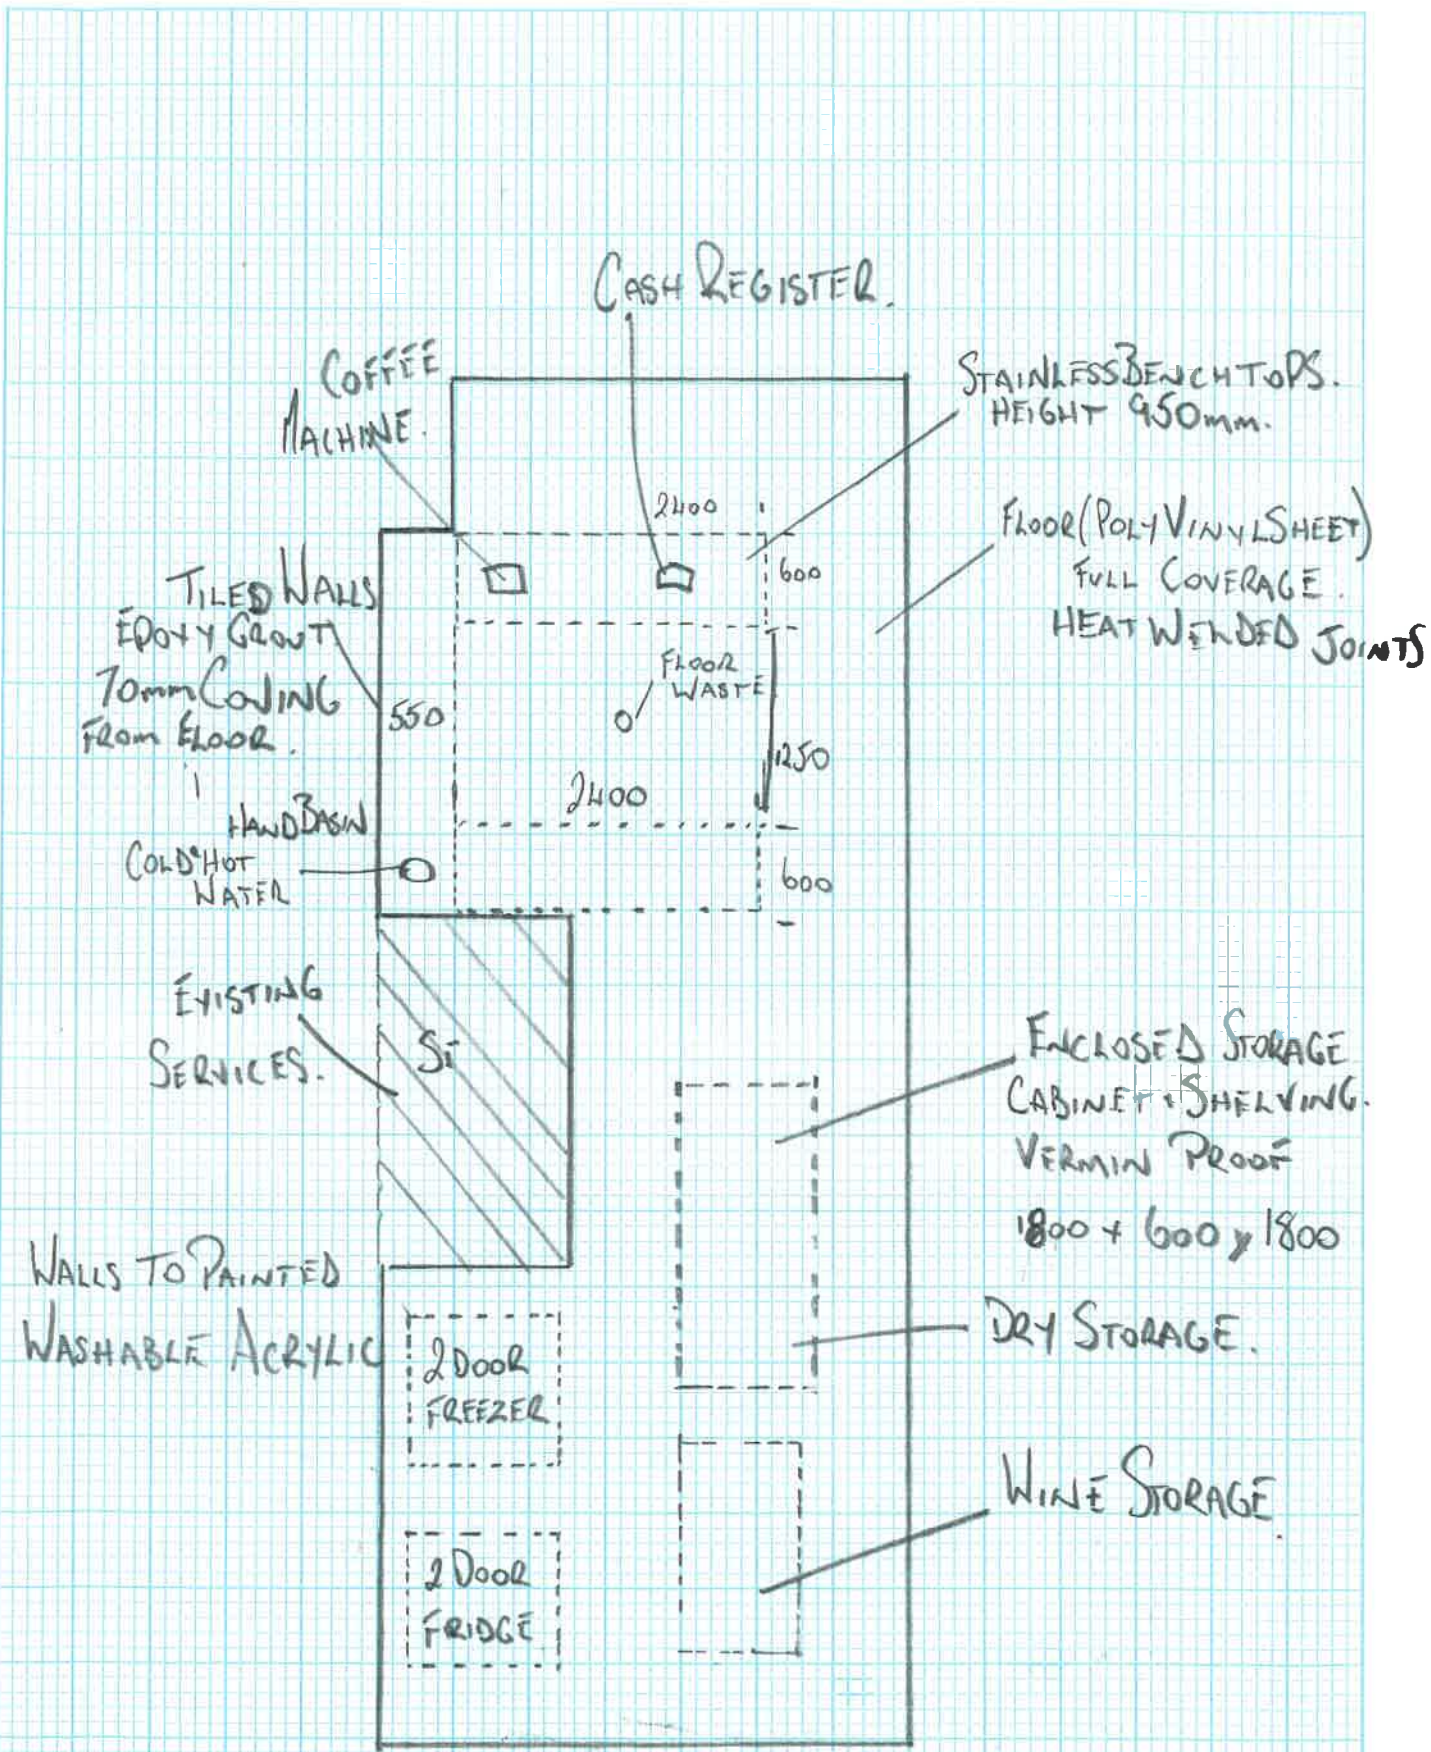 CASH REGISTER.
COFFEE
MACHINE.
STAINLESS BENCH TOPS.
HEIGHT 950mm.
2400
600
FLOOR (POLY VINYL SHEET)
FULL COVERAGE.
HEAT WELDED JOINTS
TILED WALLS
EPOXY GROUT
70mm COVING
FROM FLOOR.
550
FLOOR
WASTE
1250
2400
HAND BASIN
COLD & HOT
WATER
600
EXISTING
SERVICES.
ENCLOSED STORAGE
CABINET + SHELVING.
VERMIN PROOF
1800 x 600 x 1800
WALLS TO PAINTED
WASHABLE ACRYLIC
DRY STORAGE.
2 DOOR
FREEZER
WINE STORAGE.
2 DOOR
FRIDGE